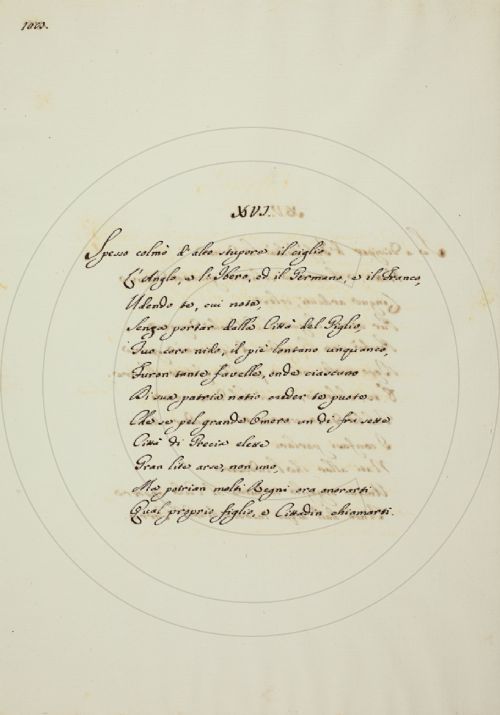 1803.
XVI.
Spesso colmò d'alto stupore il ciglio
L'Anglo, e l'Ibero, ed il Germano, e il Franco,
Udendo te, cui note
Senza portar dalla Città del Giglio,
Tuo caro nido, il piè lontano unquanco,
Furon tante favelle, onde ciascuno
Di sua patria natio creder te puote.
Che se pel grande Omero un dì fra sette
Città di Grecia elette
Gran lite arse, non uno,
Ma potrian molti Regni ora onorarti
Qual proprio figlio, e Cittadin chiamarti.